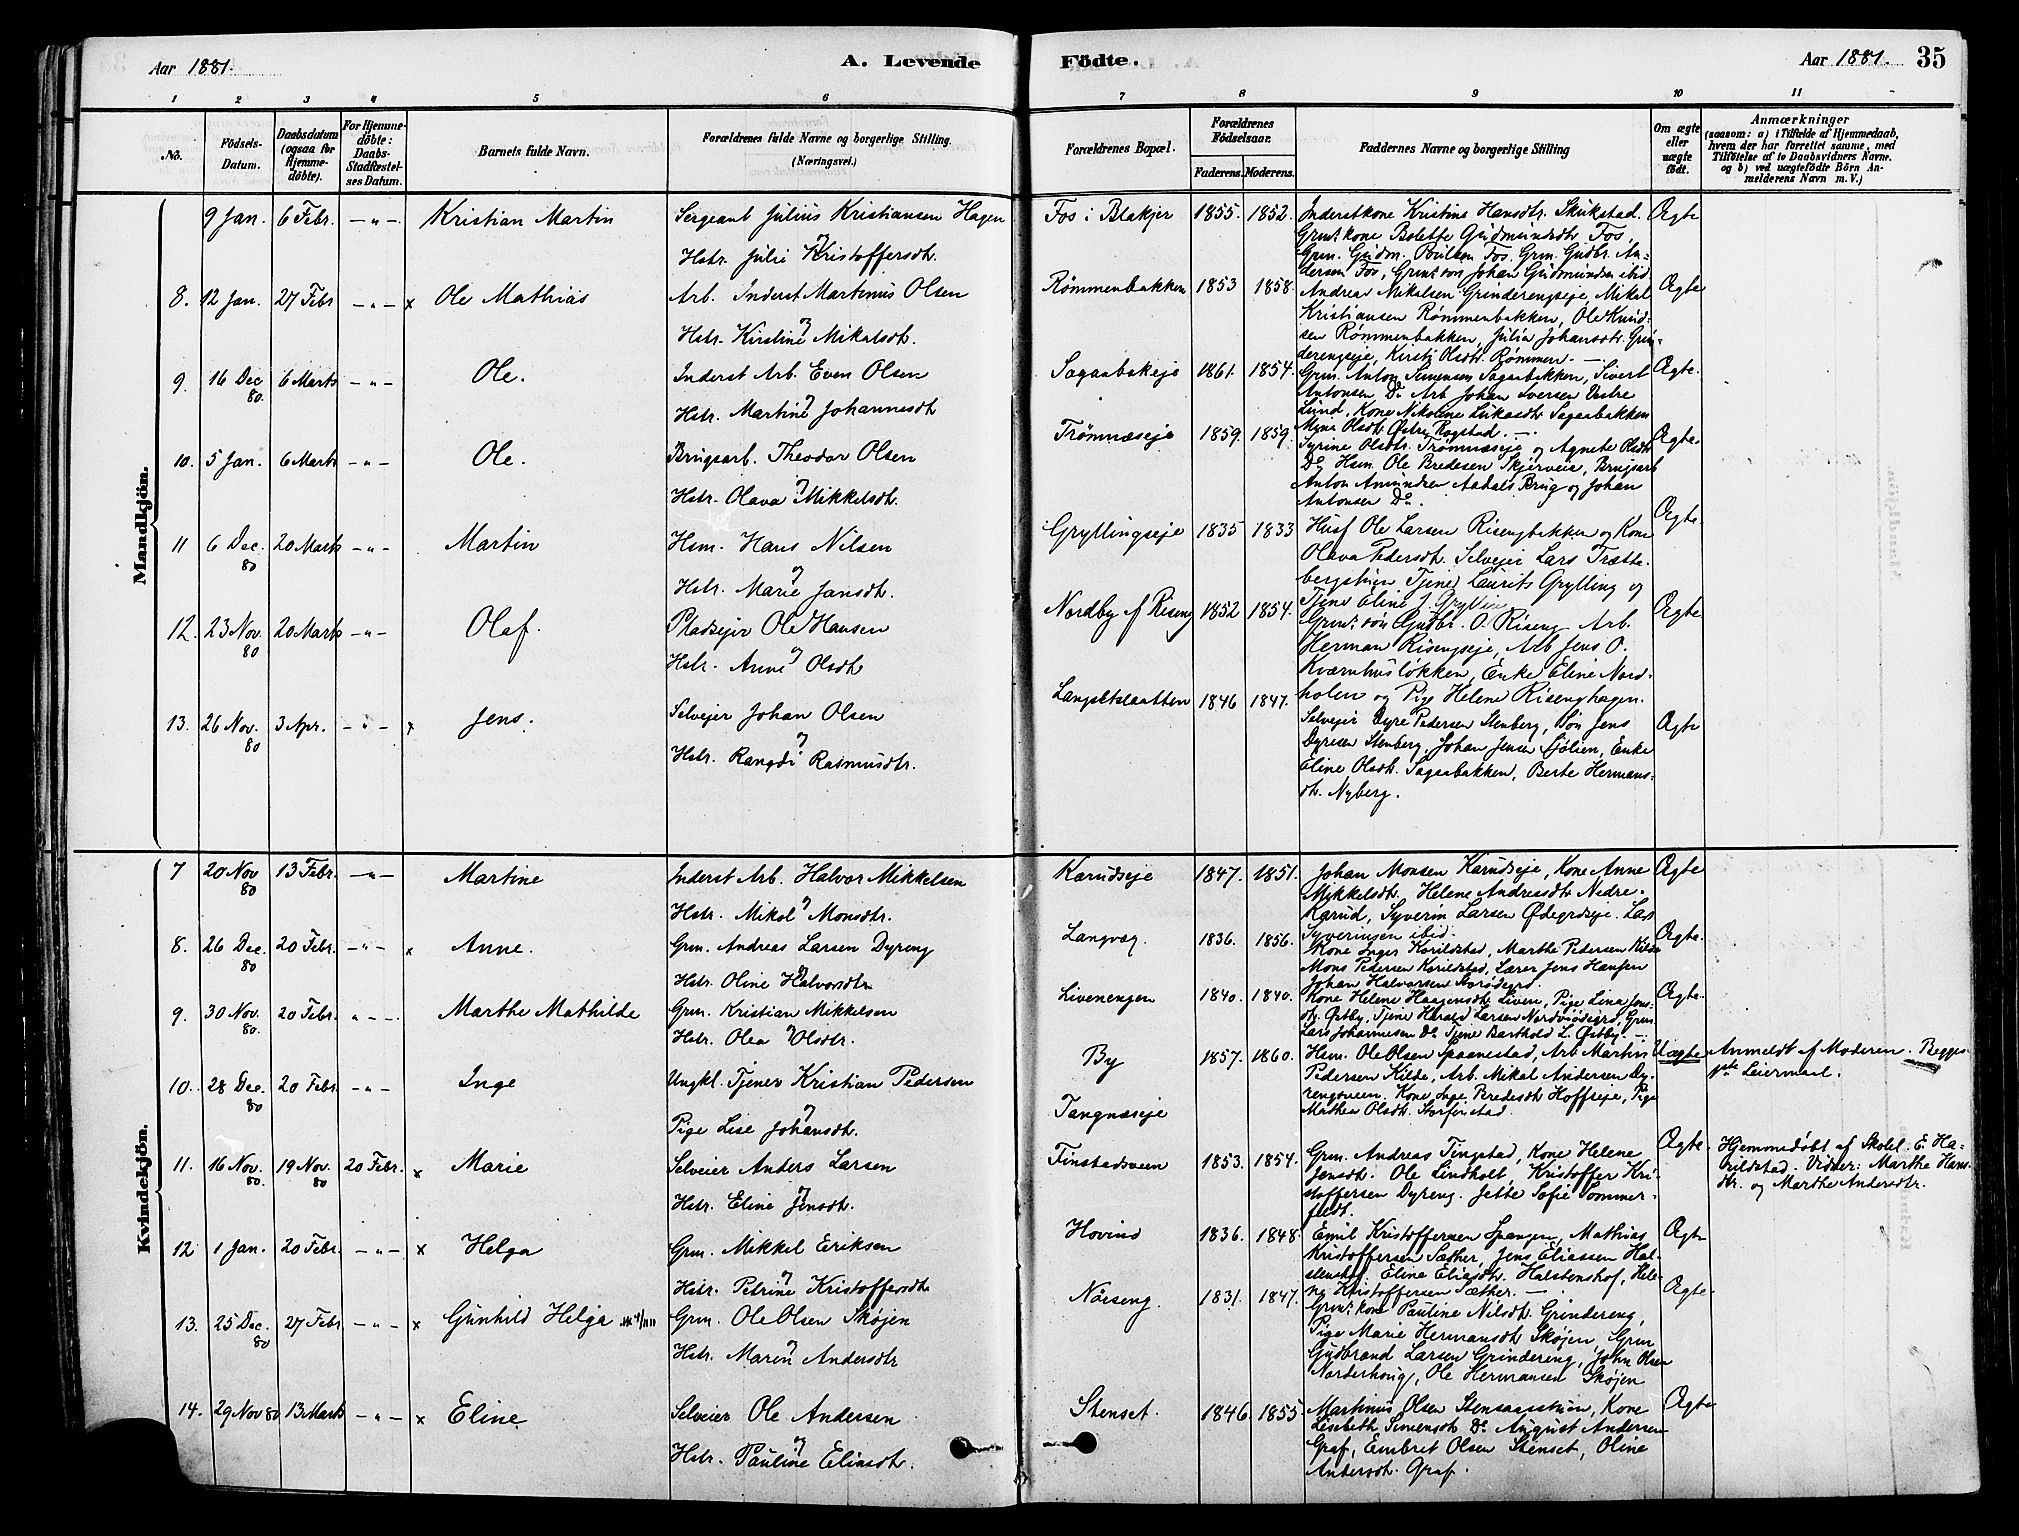 Aar 1881.
A. Levende
Födte.
Aar 1881.
35
1 2 3 4 5 6 7 8 9 10 11
No.
Födsels-Datum.
Daabsdatum (ogsaa for Hjemme-döbte).
For Hjemme-döbte: Daabs-Stadfæstel-ses Datum.
Barnets fulde Navn.
Forældrenes fulde Navne og borgerlige Stilling (Næringsvei.)
Forældrenes Bopæl.
Forældrenes Födselsaar.
Faderens. Moderens.
Faddernes Navne og borgerlige Stilling
Om ægte eller uægte født.
Anmærkninger
(saasom: a) i Tilfelde af Hjemmedaab, hvem der har forrettet samme, med Tilföielse af to Daabsvidners Navne. og b) ved uægtefödte Börn An-melderens Navn m. V.)
Mandkjön.
9 Jan. 6 Febr. — " — Kristian Martin
Sergeant Julius Kristiansen Hagen
Hstr. Julie Kristoffersdtr.
Fos i Blakjer 1855. 1852.
Inderstkone Kristine Hansdtr. Skukstad.
Grm. kone Bolette Gudmundsdtr Fos
Grm. Gudm. Poulsen Fos. Grm. Gudbr. An-
dersen Fos, Grm. søn Johan Gudmundsen ibid
Ægte
8. 12 Jan. 27 Febr — " — x Ole Mathias
Arb. Inderst Martinus Olsen
Hstr. Kirstine Mikalsdtr.
Rømmenbakken 1853 1858.
Andreas Mikalsen Grinderengseje, Mikal
Kristiansen Rømmenbakken, Ole Knud-
sen Rømmenbakken, Julia Johansdtr. Grin-
derengseje, Kirsti Olsdtr. Rømmen. —
Ægte
9. 16 Dec 80. 6 Marts — " — Ole.
Inderst Arb. Even Olsen
Hstr. Martine Johannesdtr
Sagaabakeje 1861. 1854.
Grm. Anton Simensen Sagaabakken, Sivert
Antonsen Do Arb Johan Iversen Vestre
Lund, Kone Nikoline Lukasdtr Sagaabakken
Mina Olsdtr. Østre Rogstad. —
Ægte.
10. 5 Jan. 6 Marts — " — Ole.
Brugsarb. Theodor Olsen
Hstr. Olava Mikkelsdtr.
Trømnæseje 1859. 1859.
Syrine Olsdtr. Trømnæseje og Agnete Olsdtr
Do Hsm. Ole Bredesen Skjerveie, Brugsarb
Anton Amundsen Aadals Brug og Johan
Antonsen Do.
Ægte
11 6 Dec. 80 20 Marts — " — Martin
Hsm. Hans Nilsen
Hstr. Marie Jansdtr.
Gryllingseje 1835 1833
Husf Ole Larsen Risengbakken og Kone
Olava Pedersdtr. Selvejer Lars Trætte-
bergstuen Tjener Laurits Grylling og
Tjene Eline J. Grylling
Ægte
12. 23 Nov. 80 20 Marts — " — Olaf.
Pladsejer Ole Hansen
Hstr. Anne Olsdtr
Nordby af Riseng 1852 1854.
Grm. søn Gudbr. O. Riseng Arb.
Herman Risengseje, Arb Jens O.
Kværnhusløkken, Enke Eline Nord-
holen og Pige Helene Risenghagen.
Ægte
13. 26 Nov. 80 3 Apr. — " — x Jens.
Selvejer Johan Olsen
Hstr. Rangdi Rasmusdtr.
Langsetslaatten 1846 1847.
Selvejer Dyre Pedersen Stenberg, Søn Jens
Dyresen Stenberg. Johan Jensen Sjølien, Enke
Eline Olsdtr. Sagaabakken, Berte Hermans-
dtr. Nyberg.
Ægte
Kvindekjön.
7 20 Nov 80 13 Febr. — " — Martine
Inderst Arb. Halvor Mikkelsen
Hstr. Mikol Monsdtr.
Karudseje 1847. 1851.
Johan Monsen Karudseje, Kone Anne
Mikkelsdtr. Helene Andreasdtr Nedre
Karud, Syverin Larsen Ødegrdseje. Lars
Syveringsen ibid.
Ægte
8. 26 Dec. 80 20 Febr. — " — x Anne.
Grm. Andreas Larsen Dyreng
Hstr. Oline Halvorsdtr
Langvæg 1836. 1856.
Kone Inger Karildstad, Marthe Pedersen Kilde
Mons Pedersen Karildstad, Lærer Jens Hansen
Johan Halvorsen
Ægte.
9. 30 Nov. 80. 20 Febr. " — . Marthe Mathilde
Grm. Kristian Mikkelsen
Hstr. Olea Olsdtr.
Livenengen 1840. 1840.
Kone Helene Haagensdtr. Liven, Pige Lina Jens-
dtr. Østby, Tjene Harald Larsen Nordviødegrd, Grm.
Lars Johannesen Do Tjene Barthold L. Østby. —
Ægte.
10. 28 Dec. 80 20 Febr — " — Inge
Ungkl. Tjener Kristian Pedersen
Pige Lise Johansdtr.
By
Tangnæseje
1857. 1860.
Hsm. Ole Olsen Spaanestad, Arb Martin
Pedersen Kilde, Arb. Mikal Andersen Dy-
rengsveen. Kone Inge Bredesdtr Hoffseje, Pige
Mathea Olsdtr. Storfinstad.
Uægte
Anmeldt af Moderen. Begges
1ste Leiermaal.
11. 16 Nov. 80. 19 Nov. 80 20 Febr. x Marie
Selveier Anders Larsen
Hstr. Eline Jensdtr.
Finstadsveen 1853. 1854.
Grm. Andreas Tingstad, Kone Helene
Jensdtr. Ole Lindholt, Kristoffer Kri-
stoffersen Dyreng. Jette Sofie Sommer-
feldt.
Ægte.
Hjemmedøbt af Skolel. E. Ha-
rildstad. Vidner: Marthe Hans-
dtr. og Marthe Andersdtr.
12 1 Jan. 20 Febr. — " — x Helga
Grm. Mikkel Eriksen
Hstr. Petrine Kristoffersdtr
Hovind 1836. 1848.
Emil Kristoffersen Spangen, Mathias
Kristoffersen Sæther, Jens Eliassen Hal-
stenshof. Eline Eliasdtr. Halstenshof, Hele-
ne Kristoffersen Sæther. —
Ægte
13. 25 Dec. 80 27 Febr — " — x Gunhild Helga
Grm. Ole Olsen Skøjen
Hstr. Maren Andersdtr
Nørseng. 1831. 1847.
Grm. kone Pauline Nilsdtr. Grindereng,
Pige Marie Hermansdtr Skøjen, Grm
Gudbrand Larsen Grindereng, John Olsen
Norderhoug, Ole Hermansen Skøjen
Ægte.
14. 29 Nov 80 13 Marts — " — x Eline
Selveier Ole Andersen
Hstr. Pauline Eliasdtr.
Stenset. 1846. 1855
Martinus Olsen Stensaasstuen, Kone
Lisebeth Simensdtr Do. August Andersen
Graf, Embret Olsen Stenset, Oline
Andersdtr. Graf.
Ægte